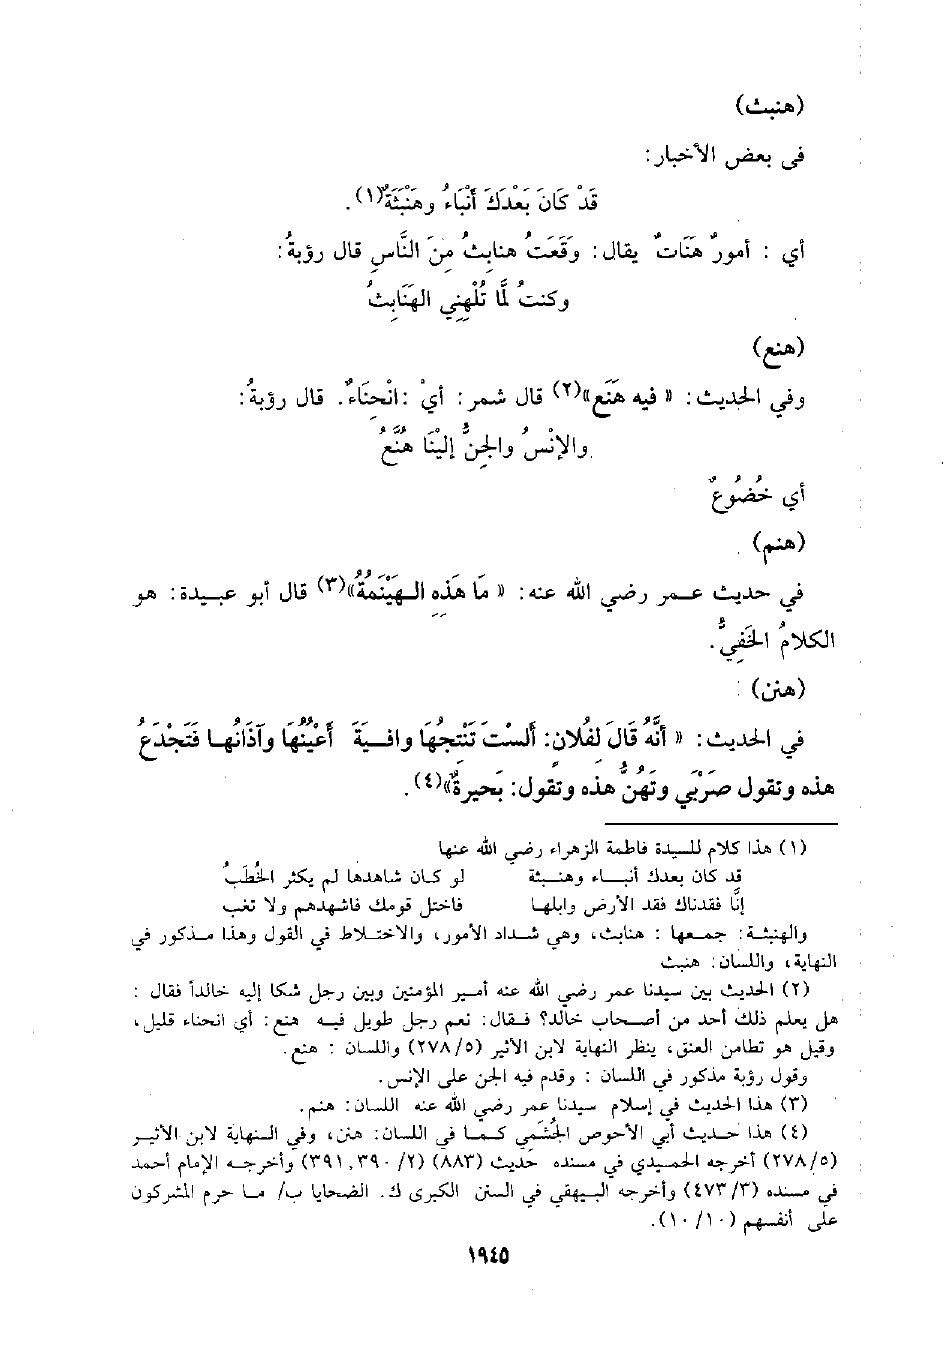 (هنبث)
فى بعض الأخبار:
قَدْ كَانَ بَعْدَكَ أَنْبَاءُ وهَنْبَثَةٌ(١).
أي : أمورٌ هَنَاتٌ يقال: وَقَعَتْ هنابثُ مِنَ النَّاسِ قال رؤبةُ:
وكنتُ لَمَّا تُلْهِنِي الهَنَابِثُ
(هنع)
وفي الحديث: « فيه هَنَع»(٢) قال شمر: أيْ :انْحِنَاءٌ. قال رؤبةُ:
والإنْسُ والجِنُّ إليْنَا هُنَّعُ
أي خُضُوعٌ
(هنم)
في حديث عمر رضي الله عنه: « مَا هَذِهِ الهَيْنَمةُ»(٣) قال أبو عبيدة: هو
الكلامُ الخَفِيُّ.
(هنن)
في الحديث: « أنَّهُ قَالَ لفُلَانٍ: أَلسْتَ تَنْتِجُهَا وافيةَ أَعْيُنُهَا وآذَانُها فَتَجْدَعُ
هذه وتقول صَرْبَي وتَهُنُّ هذه وتقول: بَحيرةٌ»(٤).
(١) هذا كلام للسيدة فاطمة الزهراء رضي الله عنها
قد كان بعدك أنباء وهنبثة لو كان شاهدها لم يكثر الخُطَبُ
إنَّا فقدناك فقد الأرض وابلها فاختل قومك فاشهدهم ولا تغب
والهنبثة: جمعها : هنابث، وهي شداد الأمور، والاختلاط في القول وهذا مذكور في
النهاية، واللسان: هنبث
(٢) الحديث بين سيدنا عمر رضي الله عنه أمير المؤمنين وبين رجل شكا إليه خالداً فقال :
هل يعلم ذلك أحد من أصحاب خالد؟ فقال: نعم رجل طويل فيه هنع: أي انحناء قليل،
وقيل هو تطامن العنق، ينظر النهاية لابن الأثير (٢٧٨/٥) واللسان : هنع.
وقول رؤبة مذكور في اللسان : وقدم فيه الجن على الإنس.
(٣) هذا الحديث في إسلام سيدنا عمر رضي الله عنه اللسان: هنم.
(٤) هذا حديث أبي الأحوص الجُشَمي كما في اللسان: هنن، وفي النهاية لابن الأثير
(٢٧٨/٥) أخرجه الحميدي في مسنده حديث (٨٨٣) (٢/ ٣٩٠, ٣٩١) وأخرجه الإمام أحمد
في مسنده (٤٧٣/٣) وأخرجه البيهقي في السنن الكبرى ك. الضحايا ب/ ما حرم المشركون
على أنفسهم (١٠/١٠).
١٩٤٥